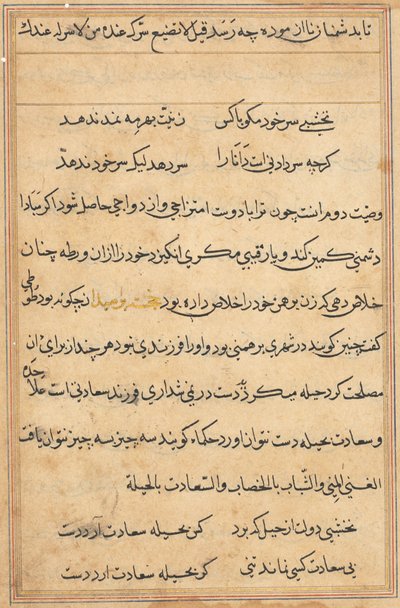 تا بدشمنان ناازموده چه رسد قیل لا تضیع سرک عنده من لا سر له عندک
نخشبی سر خود مکو با کس
کرچه سر دادنی است دانا را سر دهد لیک سر خود ندهد
وصیت دوم انست چون ترا با دوست امتزاجی و ازدواجی حاصل شود اکر مبادا
دشمنی کمین کند و یا رقیبی مکری انکیزد خود را ازان ورطه چنان
خلاص دهی که زن برهمن خود را خلاص داده بود خجسته پرسید ان چکونه بود طوطی
کفت چنین کویند در شهری برهمنی بود و اورا فرزندی نبود هر چند از برای ان
مصلحت کرد حیله میکرد دست در نمی شد اری فرزند سعادتی است علاحده
و سعادت بحیله دست نتوان اورد حکماء کویند سه چیز بسه چیز نتوان یافت
الغنی بالمنی والشباب بالخضاب والسعادت بالحیلة
نخشبی دولت از حیل که برد کس بحیله سعادت آرد دست
بی سعادت کسی نماند نبی کر بحیله سعادت ارد دست